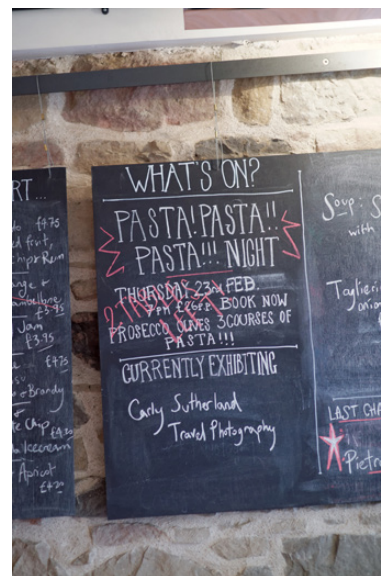 RT...
£4.75
ed fruit,
Rum
£5.95
Jam
£3.95
£4.75
Brandy
Chip £4.20
Icecream
Apricot
£4.20
WHAT'S ON?
PASTA! PASTA!!
PASTA!!! NIGHT
THURSDAY 23rd FEB.
7PM BOOK NOW
PROSECCO OLIVES 3 COURSES OF
PASTA!!!
CURRENTLY EXHIBITING
Carly Sutherland
Travel Photography
Soup: S
with
Taglieri
LAST CHA
Pietro